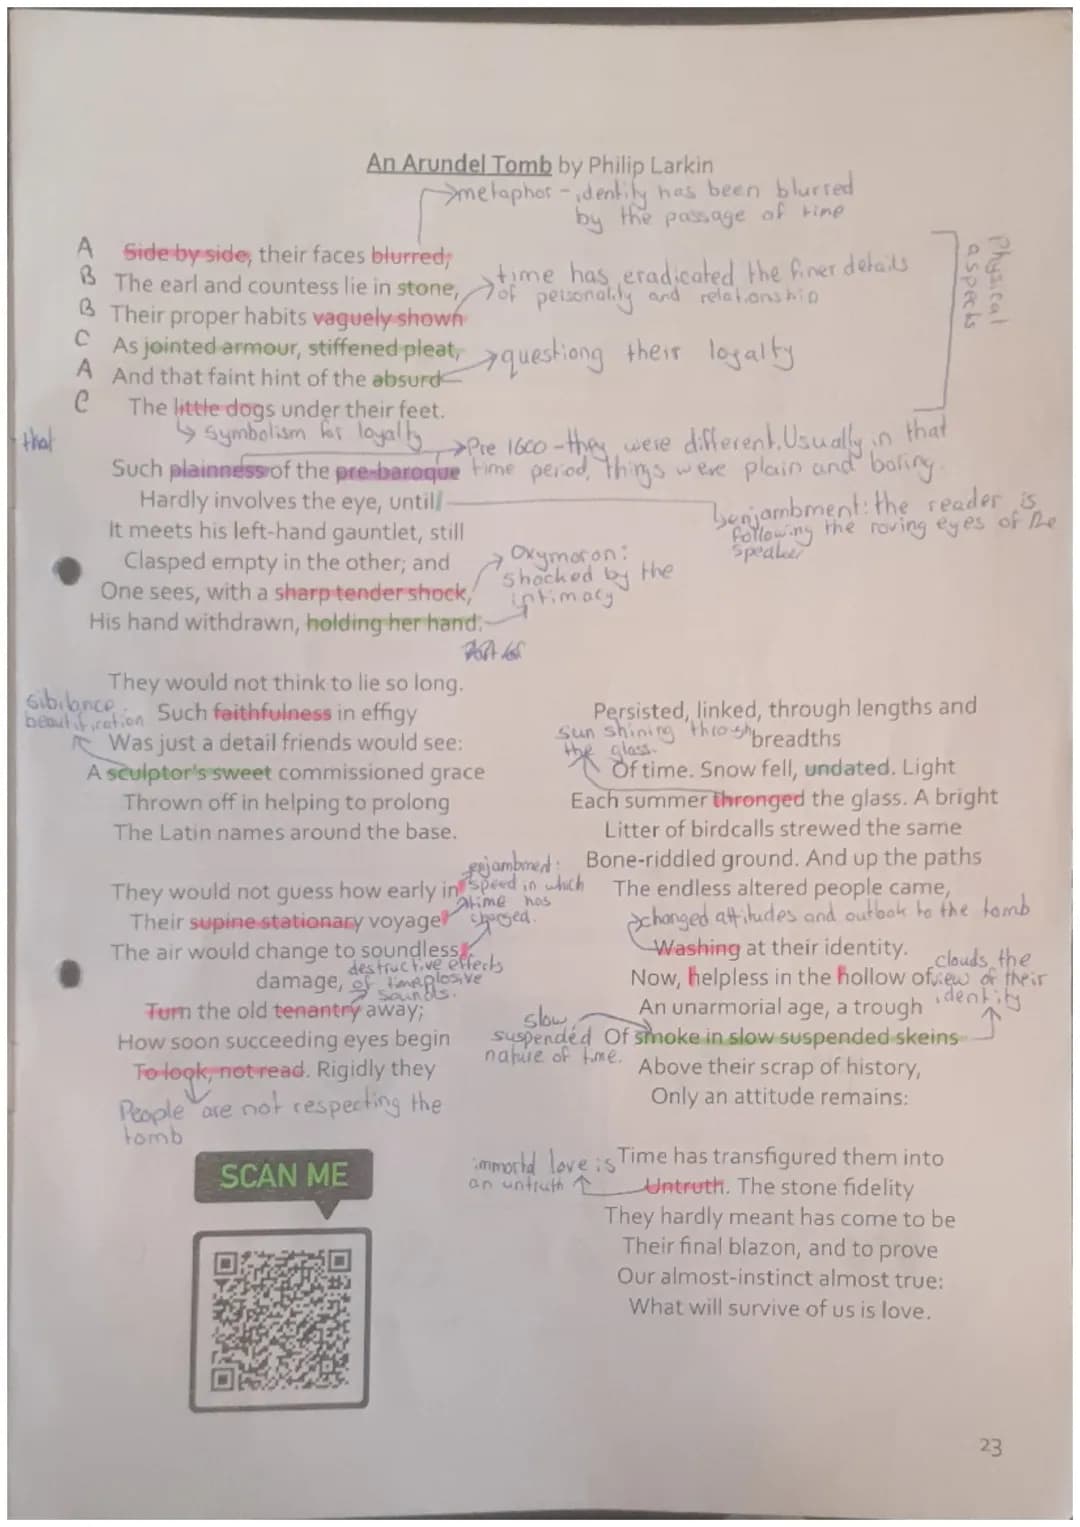 An Arundel Tomb by Philip Larkin
metaphor - identity has been blurred
by the passage of time
A Side by side, their faces blurred,
B The earl and countess lie in stone,
B Their proper habits vaguely shown
C As jointed armour, stiffened pleat,
A And that faint hint of the absurd
C The little dogs under their feet.
time has eradicated the finer details
of personality and relationship
questiong their loyalty
Physical
aspects
Symbolism for loyalty
that
Pre 1600 - they were different. Usually in that
time period, things were plain and boring.
Such plainness of the pre-baroque
Hardly involves the eye, until
It meets his left-hand gauntlet, still
Clasped empty in the other; and
One sees, with a sharp tender shock,
His hand withdrawn, holding her hand.
enjambment: the reader is
following the roving eyes of the
speaker
Oxymoron:
shocked by the
intimacy
They would not think to lie so long.
Such faithfulness in effigy
Was just a detail friends would see:
A sculptor's sweet commissioned grace
Thrown off in helping to prolong
The Latin names around the base.
sibilance
beautification
They would not guess how early in
Their supine stationary voyage
The air would change to soundless
damage,
Turn the old tenantry away;
How soon succeeding eyes begin
To look, not read. Rigidly they
enjambment:
speed in which
time has
changed.
destructive effects
of time plosive
sounds.
People are not respecting the
tomb
Persisted, linked, through lengths and
breadths
Of time. Snow fell, undated. Light
Each summer thronged the glass. A bright
Litter of birdcalls strewed the same
Bone-riddled ground. And up the paths
The endless altered people came,
sun shining through
the glass.
changed attitudes and outlook to the tomb
Washing at their identity.
Now, helpless in the hollow of
An unarmorial age, a trough
Of smoke in slow suspended skeins
Above their scrap of history,
Only an attitude remains:
clouds the
view of their
identity
slow
suspended
nature of time.
Time has transfigured them into
Untruth. The stone fidelity
They hardly meant has come to be
Their final blazon, and to prove
Our almost-instinct almost true:
What will survive of us is love.
immortal love is
an untruth
SCAN ME
23